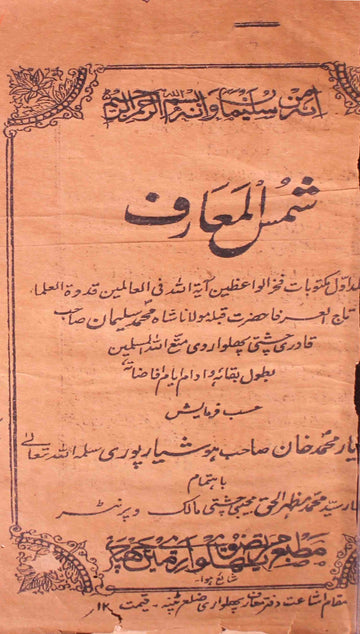 انه من سلیمان وانه بسم الله الرحمن الرحیم
شمس المعارف
جلد اول مکتوبات فخر الواعظین آیة الله فی العالمین قدوة العلماء
تاج العرفا حضرت قبلہ مولانا شاہ محمد سلیمان صاحب
قادری چشتی پھلواروی متع الله المسلمین
بطول بقائہ وادام ایام افاضاتہ
حسب فرمایش
یار محمد خان صاحب ہوشیارپوری سلمہ الله تعالیٰ
باہتمام
سید محمد مظہر الحق چشتی مالک و پرنٹر
مطبع پھلواری میں چھپکر
شائع ہوا۔
مقام اشاعت دفتر معارف پھلواری ضلع پٹنہ - قیمت